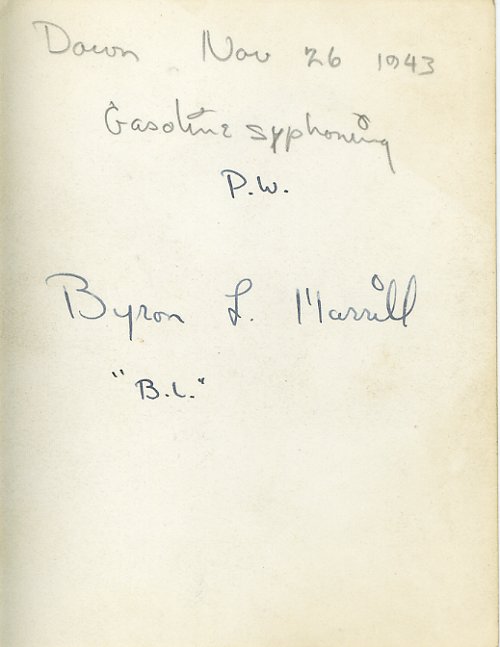 Dawn Nov 26 1943
Gasoline syphoning
P.W.
Byron L. Marrill
"B.L."